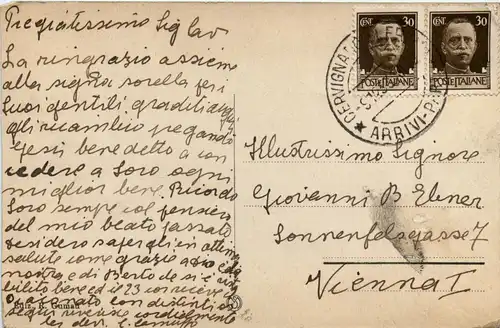 Pregiatissimo Sig Cav
La ringrazio assieme
alla signa sorella pei
Suoi gentili graditi auguri
gli ricambio pregando
Gesù benedetto a con
cedere a Loro ogni
miglior bene. Ricordo
Loro sempre col pensiero
del mio beato passato
desidero sapergli in ottima
salute come grazie a Dio è la
nostra e di Berto che si è
bene ed il 23 con
con distinti
seguì riverisco cordialmente
dev.
Ediz. R. Cuman
CENT. 30
POSTE ITALIANE
CENT. 30
POSTE ITALIANE
CERVIGNANO
ARRIVI-P
Illustrissimo Signore
Giovanni B Ebner
Sonnenfelsgasse 7
Vienna I